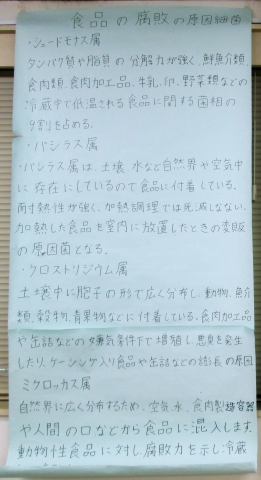 食品の腐敗の原因細菌
・シュードモナス属
タンパク質や脂質の分解力が強く、鮮魚介類、
食肉類、食肉加工品、牛乳、卵、野菜類などの
冷蔵中で低温される食品に関する菌相の
9割を占める。
・バシラス属
・バシラス属は、土壌、水など自然界や空気中
に存在にしているので食品に付着している。
耐熱性が強く、加熱調理では死滅しない。
加熱した食品を室内に放置したときの変敗
の原因菌となる。
・クロストリジウム属
土壌中に胞子の形で広く分布し、動物、魚介
類、穀物、青果物などに付着している。食肉加工品
や缶詰などの嫌気条件下で増殖し、悪臭を発生
したり、ケーシング入り食品や缶詰などの膨張の原因
ミクロッカス属
自然界に広く分布するため、空気、水、食肉製品容器
や人間の口などから食品に混入します
動物性食品に対し腐敗力を示し、冷蔵